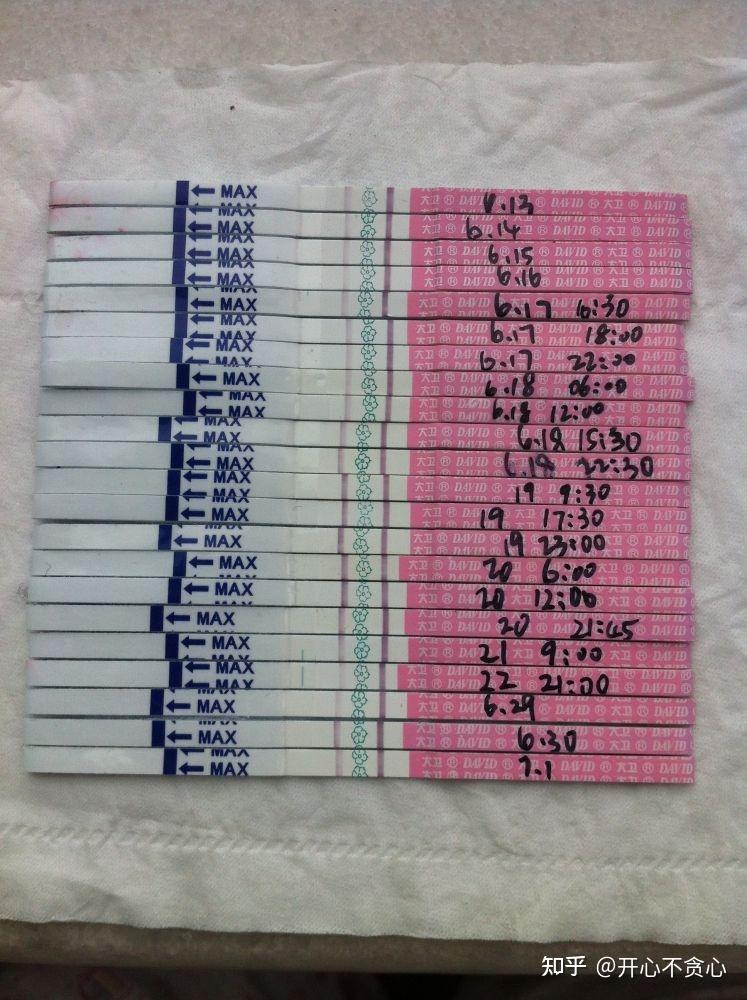 ← MAX 6.13
← MAX 6.14
← MAX 6.15
← MAX 6.16
← MAX 大卫 ® DAVID ® 6.17 6:30
← MAX 大卫 ® DAVID ® 6.17 18:00
← MAX 大卫 ® DAVID ® 6.17 22:00
← MAX 大卫 ® DAVID ® 6.18 06:00
← MAX 大卫 ® DAVID ® 6.18 12:00
← MAX 大卫 ® DAVID ® 6.18 15:30
← MAX 大卫 ® DAVID ® 6.18 22:30
← MAX 大卫 ® DAVID ® 19 9:30
← MAX 大卫 ® DAVID ® 19 17:30
← MAX 大卫 ® DAVID ® 19 23:00
← MAX 大卫 ® DAVID ® 20 6:00
← MAX 大卫 ® DAVID ® 20 12:00
← MAX 大卫 ® DAVID ® 20 21:45
← MAX 大卫 ® DAVID ® 21 9:00
← MAX 大卫 ® DAVID ® 22 21:00
← MAX 大卫 ® DAVID ® 6.29
← MAX 大卫 ® DAVID ® 6.30
← MAX 大卫 ® DAVID ® 7.1
知乎 @开心不贪心